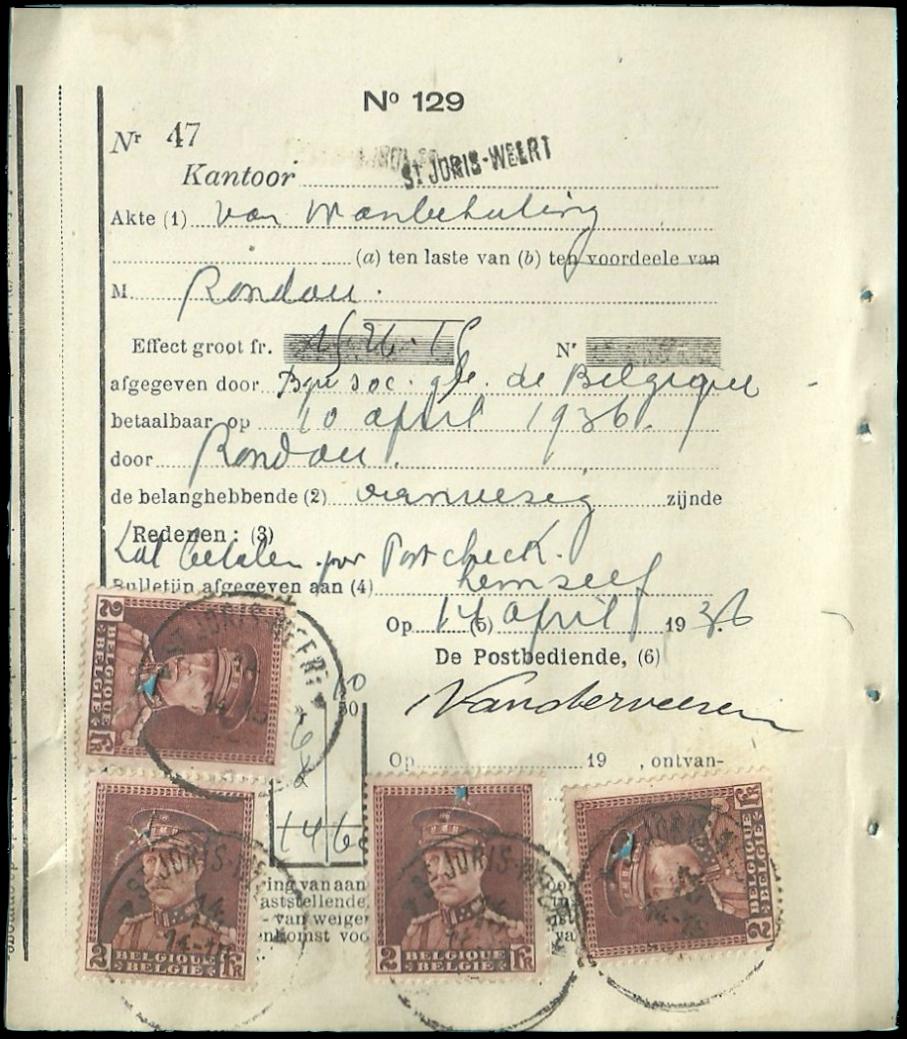 Nº 129
Nr 47
Kantoor ST JORIS-WEERT
Akte (1) van wanbetaling
(a) ten laste van (b) ten voordeele van
M Rondou.
Effect groot fr. Nr
afgegeven door Bque soc. gle. de Belgique
betaalbaar op 10 april 1936.
door Rondou.
de belanghebbende (2) aanwezig zijnde
Redenen: (3)
Zal betalen per Postcheck.
Bulletijn afgegeven aan (4) hemself
Op 14 (5) april 1936
De Postbediende, (6)
Vanderveeren
Op 19 , ontvan-
2 BELGIQUE BELGIË FR
ST JORIS-WEERT
50
146
2 BELGIQUE BELGIË FR
ST JORIS-WEERT
14
2 BELGIQUE BELGIË FR
ST JORIS-WEERT
2 BELGIQUE BELGIË FR
ing van aan
aststellende
- van weiger
enkomst voo